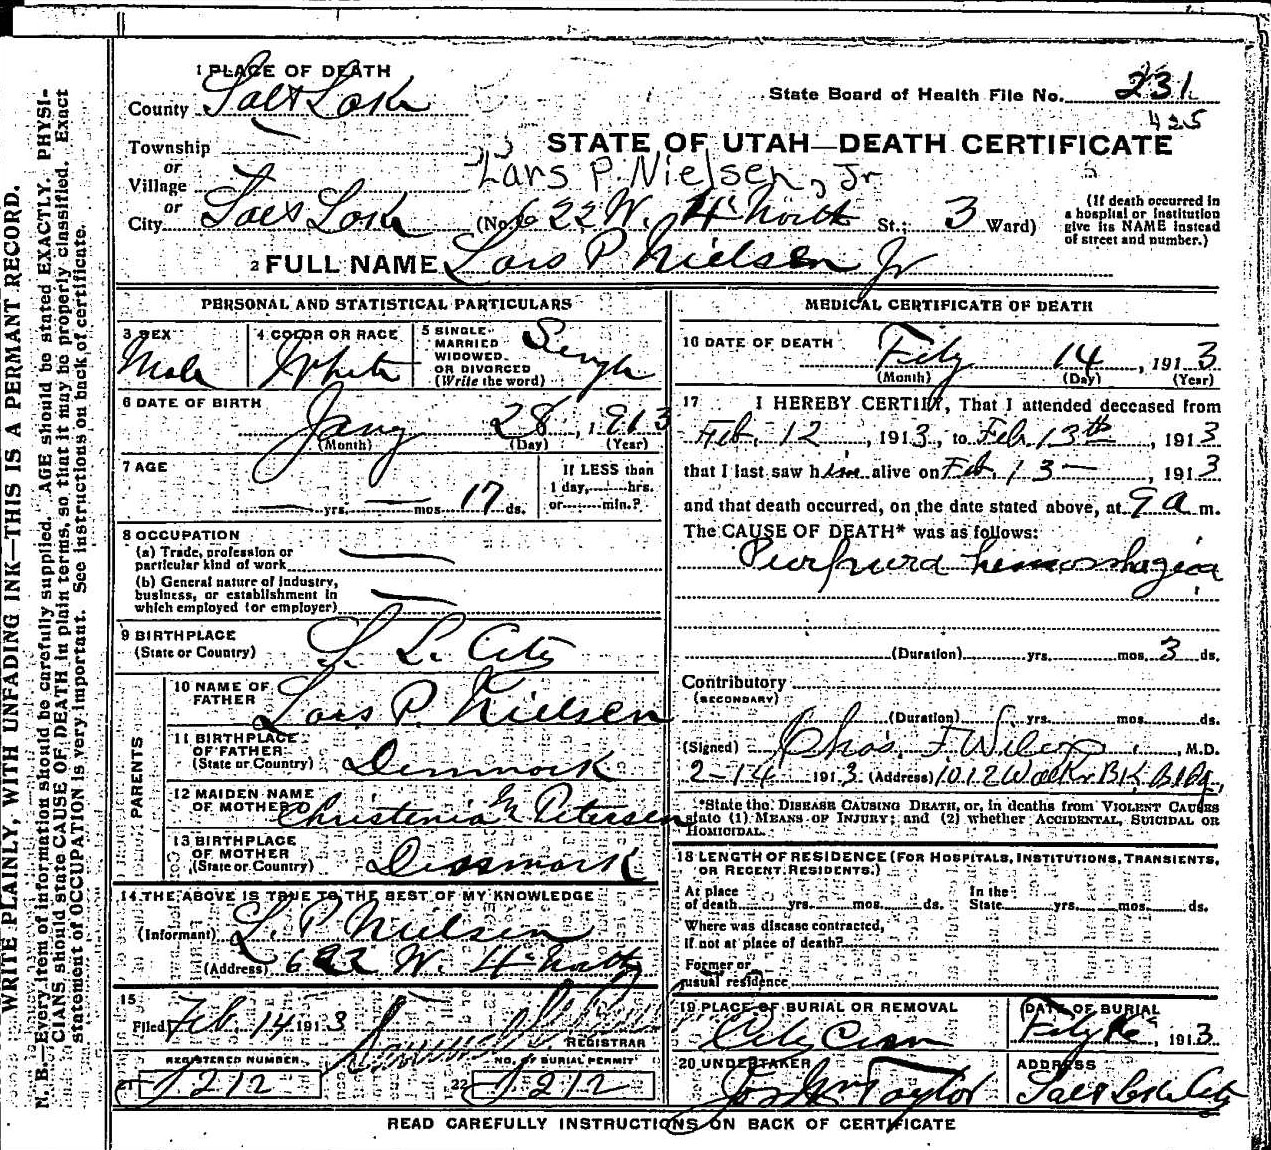 WRITE PLAINLY, WITH UNFADING INK—THIS IS A PERMANT RECORD.
N. B. Every item of information should be carefully supplied. AGE should be stated EXACTLY. PHYSI-
CIANS should state CAUSE OF DEATH in plain terms, so that it may be properly classified. Exact
statement of OCCUPATION is very important. See instructions on back of certificate.
1 PLACE OF DEATH
County Salt Lake
State Board of Health File No. 231
425
STATE OF UTAH—DEATH CERTIFICATE
Township
or
Village
Lars P. Nielsen, Jr
or
City Salt Lake (No. 622 W. 4th North St.; 3 Ward)
(If death occurred in
a hospital or institution
give its NAME instead
of street and number.)
2 FULL NAME Lars P Nielsen Jr
PERSONAL AND STATISTICAL PARTICULARS
3 SEX Male
4 COLOR OR RACE White
5 SINGLE
MARRIED
WIDOWED
OR DIVORCED
(Write the word)
Single
6 DATE OF BIRTH
Jany 28, 1913
(Month) (Day) (Year)
7 AGE
— yrs. — mos. 17 ds.
If LESS than
1 day, hrs.
or min.?
8 OCCUPATION
(a) Trade, profession or
particular kind of work —
(b) General nature of industry,
business, or establishment in
which employed (or employer) —
9 BIRTHPLACE
(State or Country) S. L. City
PARENTS
10 NAME OF
FATHER Lars P. Nielsen
11 BIRTHPLACE
OF FATHER
(State or Country) Denmark
12 MAIDEN NAME
OF MOTHER Christenia M Petersen
13 BIRTHPLACE
OF MOTHER
(State or Country) Denmark
14 THE ABOVE IS TRUE TO THE BEST OF MY KNOWLEDGE
(Informant) L. P. Nielsen
(Address) 622 W. 4th North
15
Filed Feb. 14 1913
REGISTRAR
REGISTERED NUMBER
NO. OF BURIAL PERMIT
21 1212
22 1212
MEDICAL CERTIFICATE OF DEATH
16 DATE OF DEATH
Feby 14, 1913
(Month) (Day) (Year)
17 I HEREBY CERTIFY, That I attended deceased from
Feb. 12, 1913, to Feb. 13th, 1913
that I last saw him alive on Feb. 13—, 1913
and that death occurred, on the date stated above, at 9 a m.
The CAUSE OF DEATH* was as follows:
Purpura hemorrhagica
(Duration) yrs. mos. 3 ds.
Contributory
(SECONDARY)
(Duration) yrs. mos. ds.
(Signed) Chas. F. Wilcox, M.D.
2-14 1913 (Address) 1012 Walker BK. Bldg.
*State the DISEASE CAUSING DEATH, or, in deaths from VIOLENT CAUSES
state (1) MEANS OF INJURY; and (2) whether ACCIDENTAL, SUICIDAL OR
HOMICIDAL.
18 LENGTH OF RESIDENCE (FOR HOSPITALS, INSTITUTIONS, TRANSIENTS,
OR RECENT RESIDENTS.)
At place
of death yrs. mos. ds.
In the
State yrs. mos. ds.
Where was disease contracted,
if not at place of death?
Former or
usual residence
19 PLACE OF BURIAL OR REMOVAL
City Cem
DATE OF BURIAL
Feby, 1913
20 UNDERTAKER
Jos Wm Taylor
ADDRESS
Salt Lake City
READ CAREFULLY INSTRUCTIONS ON BACK OF CERTIFICATE